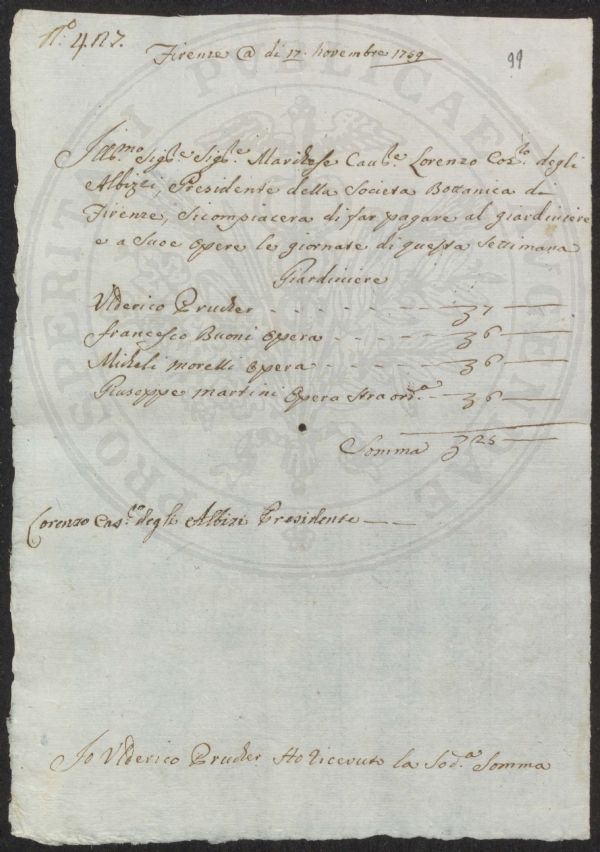 N.º 487.
Firenze @ di 17. Novembre 1759
99
Ill.mo Sig.re Sig.re Marchese Cav.re Lorenzo Cos.to degli
Albizei, Presidente della Societa Bottanica di
Firenze, Sicompiacera di far pagare al giardiniere
e a Suoe Opere le giornate di questa Settimana
Giardiniere
Ulderico Prucker - - - - - - - 7 —
francesco Buoni Opera - - - - - 6 —
Micheli Morelli Opera - - - - - 6 —
Giuseppe Martini Opera Straord.a - - 6 —
Somma 25 —
Lorenzo degli Albizi Presidente —
Io Ulderico Prucker Ho Ricevuto la Sod.a Somma
PROSPERITATI PUBLICAE